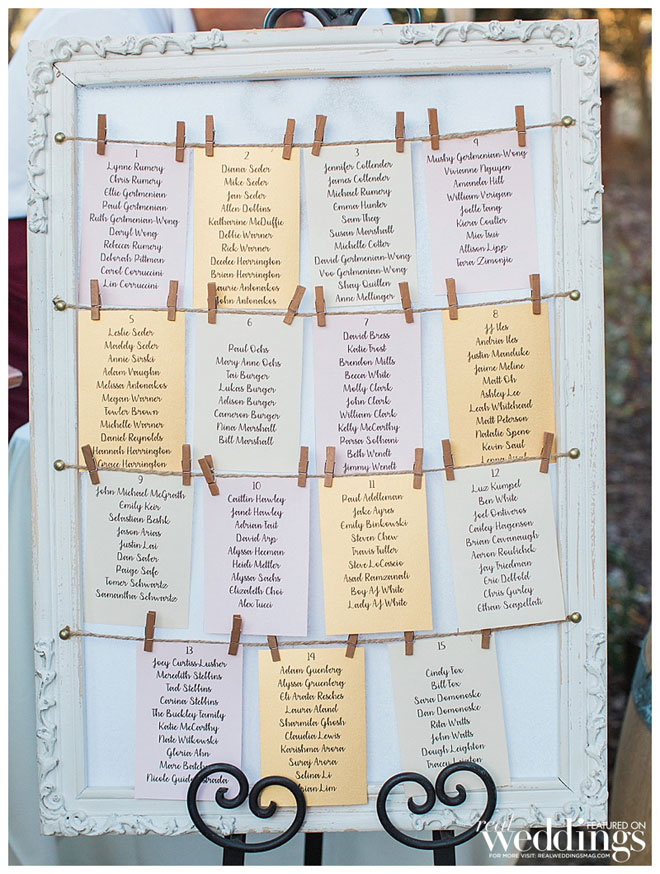 1
Lynne Rumery
Chris Rumery
Ellie Gertmenian
Paul Gertmenian
Ruth Gertmenian-Wong
Daryl Wong
Rebecca Rumery
Deborah Pittman
Carol Corruccini
Lin Corruccini
2
Diana Seder
Mike Seder
Jan Seder
Allen Dobbins
Katharine McDuffie
Debbie Warner
Rick Warner
Deedee Harrington
Brian Harrington
Dale Antonakos
John Antonakos
3
Jennifer Collender
James Collender
Michael Rumery
Emma Hunter
Sam They
Susan Marshall
Michelle Cotter
David Gertmenian-Wong
Voo Gertmenian-Wong
Shay Quillen
Anne Mellinger
4
Mushy Gertmenian-Wong
Vivianne Nguyen
Amanda Hill
William Verigan
Joelle Tang
Kiera Coulter
Mia Tsui
Allison Lipp
Tara Zimonjic
5
Leslie Seder
Maddy Seder
Annie Sirski
Adam Vaughn
Melissa Antonakos
Megan Warner
Towler Brown
Michelle Warner
Daniel Reynolds
Hannah Harrington
Grace Harrington
6
Paul Ochs
Mary Anne Ochs
Tai Burger
Lukas Burger
Adison Burger
Cameron Burger
Nina Marshall
Bill Marshall
7
David Bress
Katie Frost
Brendon Mills
Becca White
Molly Clark
John Clark
William Clark
Kelly McCarthy
Parsa Solhani
Beth Wendt
Jimmy Wendt
8
JJ Iles
Andria Iles
Justin Manduke
Jaime Meline
Matt Oh
Ashley Leo
Leah Whitehead
Matt Peterson
Natalie Speno
Kevin Saul
9
John Michael McGrath
Emily Keir
Sebastian Beshk
Jason Arias
Justin Lai
Dan Saber
Paige Safe
Tomer Schwartz
Samantha Schwartz
10
Caitlin Hawley
Janet Hawley
Adrian Tait
David Arp
Alyssa Heeman
Heidi Mettler
Alyssa Sachs
Elizabeth Choi
Alex Tucci
11
Paul Addleman
Jake Ayres
Emily Binkowski
Steven Chew
Travis Fuller
Steve LoCascio
Asad Ramzanali
Boy AJ White
Lady AJ White
12
Luz Kumpel
Ben White
Joel Ontiveros
Cailey Hagenson
Brian Cavanaugh
Aaron Roubichek
Jay Friedman
Eric DeBold
Chris Gurley
Ethan Scapellati
13
Joey Curtiss-Lusher
Meredith Stebbins
Tad Stebbins
Carina Stebbins
The Buckley Family
Katie McCarthy
Nate Witkowski
Gloria Ahn
Marc
Nicole
14
Adam Guenther
Alyssa Gruenberg
Eli Arata Resches
Laura Aland
Sharmila Ghosh
Claudia Lewis
Karishma Arora
Suraj Arora
Selina Li
Lim
15
Cindy Fox
Bill Fox
Sara Domonoske
Dan Domonoske
Rita Watts
John Watts
Dough Leighton
Tracey
FEATURED ON
real Weddings
FOR MORE VISIT: WWW.REALWEDDINGSMAG.COM